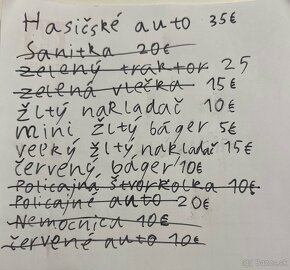 Hasičské auto 35€
Sanitka 20€
zelený traktor 25
zelená vlečka 15€
žltý nakladač 10€
mini žltý báger 5€
veľký žltý nakladač 15€
červený báger 10€
Policajná štvorkolka 10€
Policajné auto 20€
Nemocnica 10€
červené auto 10€